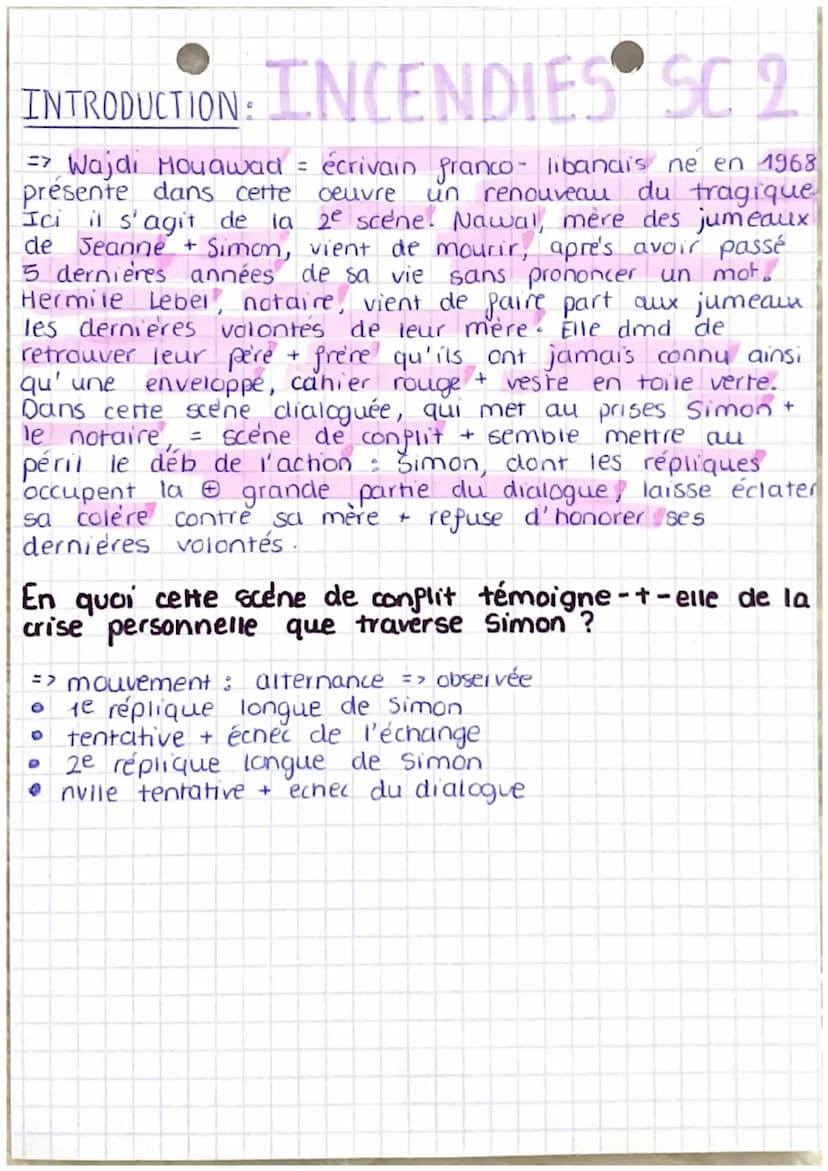 INTRODUCTION: INCENDIES SC 2
=> Wajdi Mouawad = écrivain franco-libanais né en 1968
présente dans cette oeuvre un renouveau du tragique.
Ici il s'agit de la 2e scène. Nawal, mère des jumeaux
de Jeanne + Simon, vient de mourir, après avoir passé
5 dernières années de sa vie sans prononcer un mot.
Hermile Lebel, notaire, vient de faire part aux jumeaux
les dernières volontés de leur mère. Elle dmd de
retrouver leur père + frère qu'ils ont jamais connu ainsi
qu'une enveloppe, cahier rouge + veste en toile verte.
Dans cette scène dialoguée, qui met au prises Simon +
le notaire, = scène de conflit + semble mettre au
péril le déb de l'action : Simon, dont les répliques
occupent la ⊕ grande partie du dialogue, laisse éclater
sa colère contre sa mère + refuse d'honorer ses
dernières volontés.
En quoi cette scène de conflit témoigne-t-elle de la
crise personnelle que traverse Simon ?
=> mouvement : alternance => observée
• 1e réplique longue de Simon
• tentative + échec de l'échange
• 2e réplique longue de Simon
• nvlle tentative + echec du dialogue